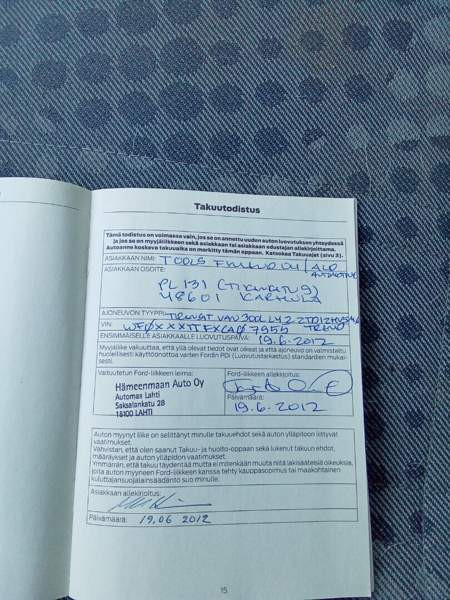 Takuutodistus
Tämä todistus on voimassa vain, jos se on annettu uuden auton luovutuksen yhteydessä
ja jos se on myyjäliikkeen sekä asiakkaan tai asiakkaan edustajan allekirjoittama.
Autoanne koskeva takuuaika on merkitty tämän oppaan. Katsokaa Takuuajat (sivu 3).
ASIAKKAAN NIMI: TOOLS FINLAND OY / ALD
AUTOMOTIVE
ASIAKKAAN OSOITE:
PL 131 (TIKANKATU 9)
48601 KARHULA
AJONEUVON TYYPPI: TRANSIT VAN 300L
TREND
VIN: WF0XXXTTFXCA07955
ENSIMMÄISELLE ASIAKKAALLE LUOVUTUSPÄIVÄ: 19.6-2012
Myyjäliike vakuuttaa, että yllä olevat tiedot ovat oikeat ja että ajoneuvo on valmisteltu
huolellisesti käyttöönottoa varten Fordin PDI (Luovutustarkastus) standardien mukai-
sesti.
Valtuutetun Ford-liikkeen leima:
Ford-liikkeen allekirjoitus:
Hämeenmaan Auto Oy
Automaa Lahti
Saksalankatu 28
15100 LAHTI
Päivämäärä:
19.6-2012
Auton myynyt liike on selittänyt minulle takuuehdot sekä auton ylläpitoon liittyvät
vaatimukset.
Vahvistan, että olen saanut Takuu- ja huolto-oppaan sekä lukenut takuun ehdot,
määräykset ja auton ylläpidon vaatimukset.
Ymmärrän, että takuu täydentää mutta ei mitenkään muuta niitä lakisääteisiä oikeuksia,
joita auton myyneen Ford-liikkeen kanssa tehty kauppasopimus tai maakohtainen
kuluttajansuojalainsäädäntö suo minulle.
Asiakkaan allekirjoitus:
Päivämäärä: 19.06 2012
15